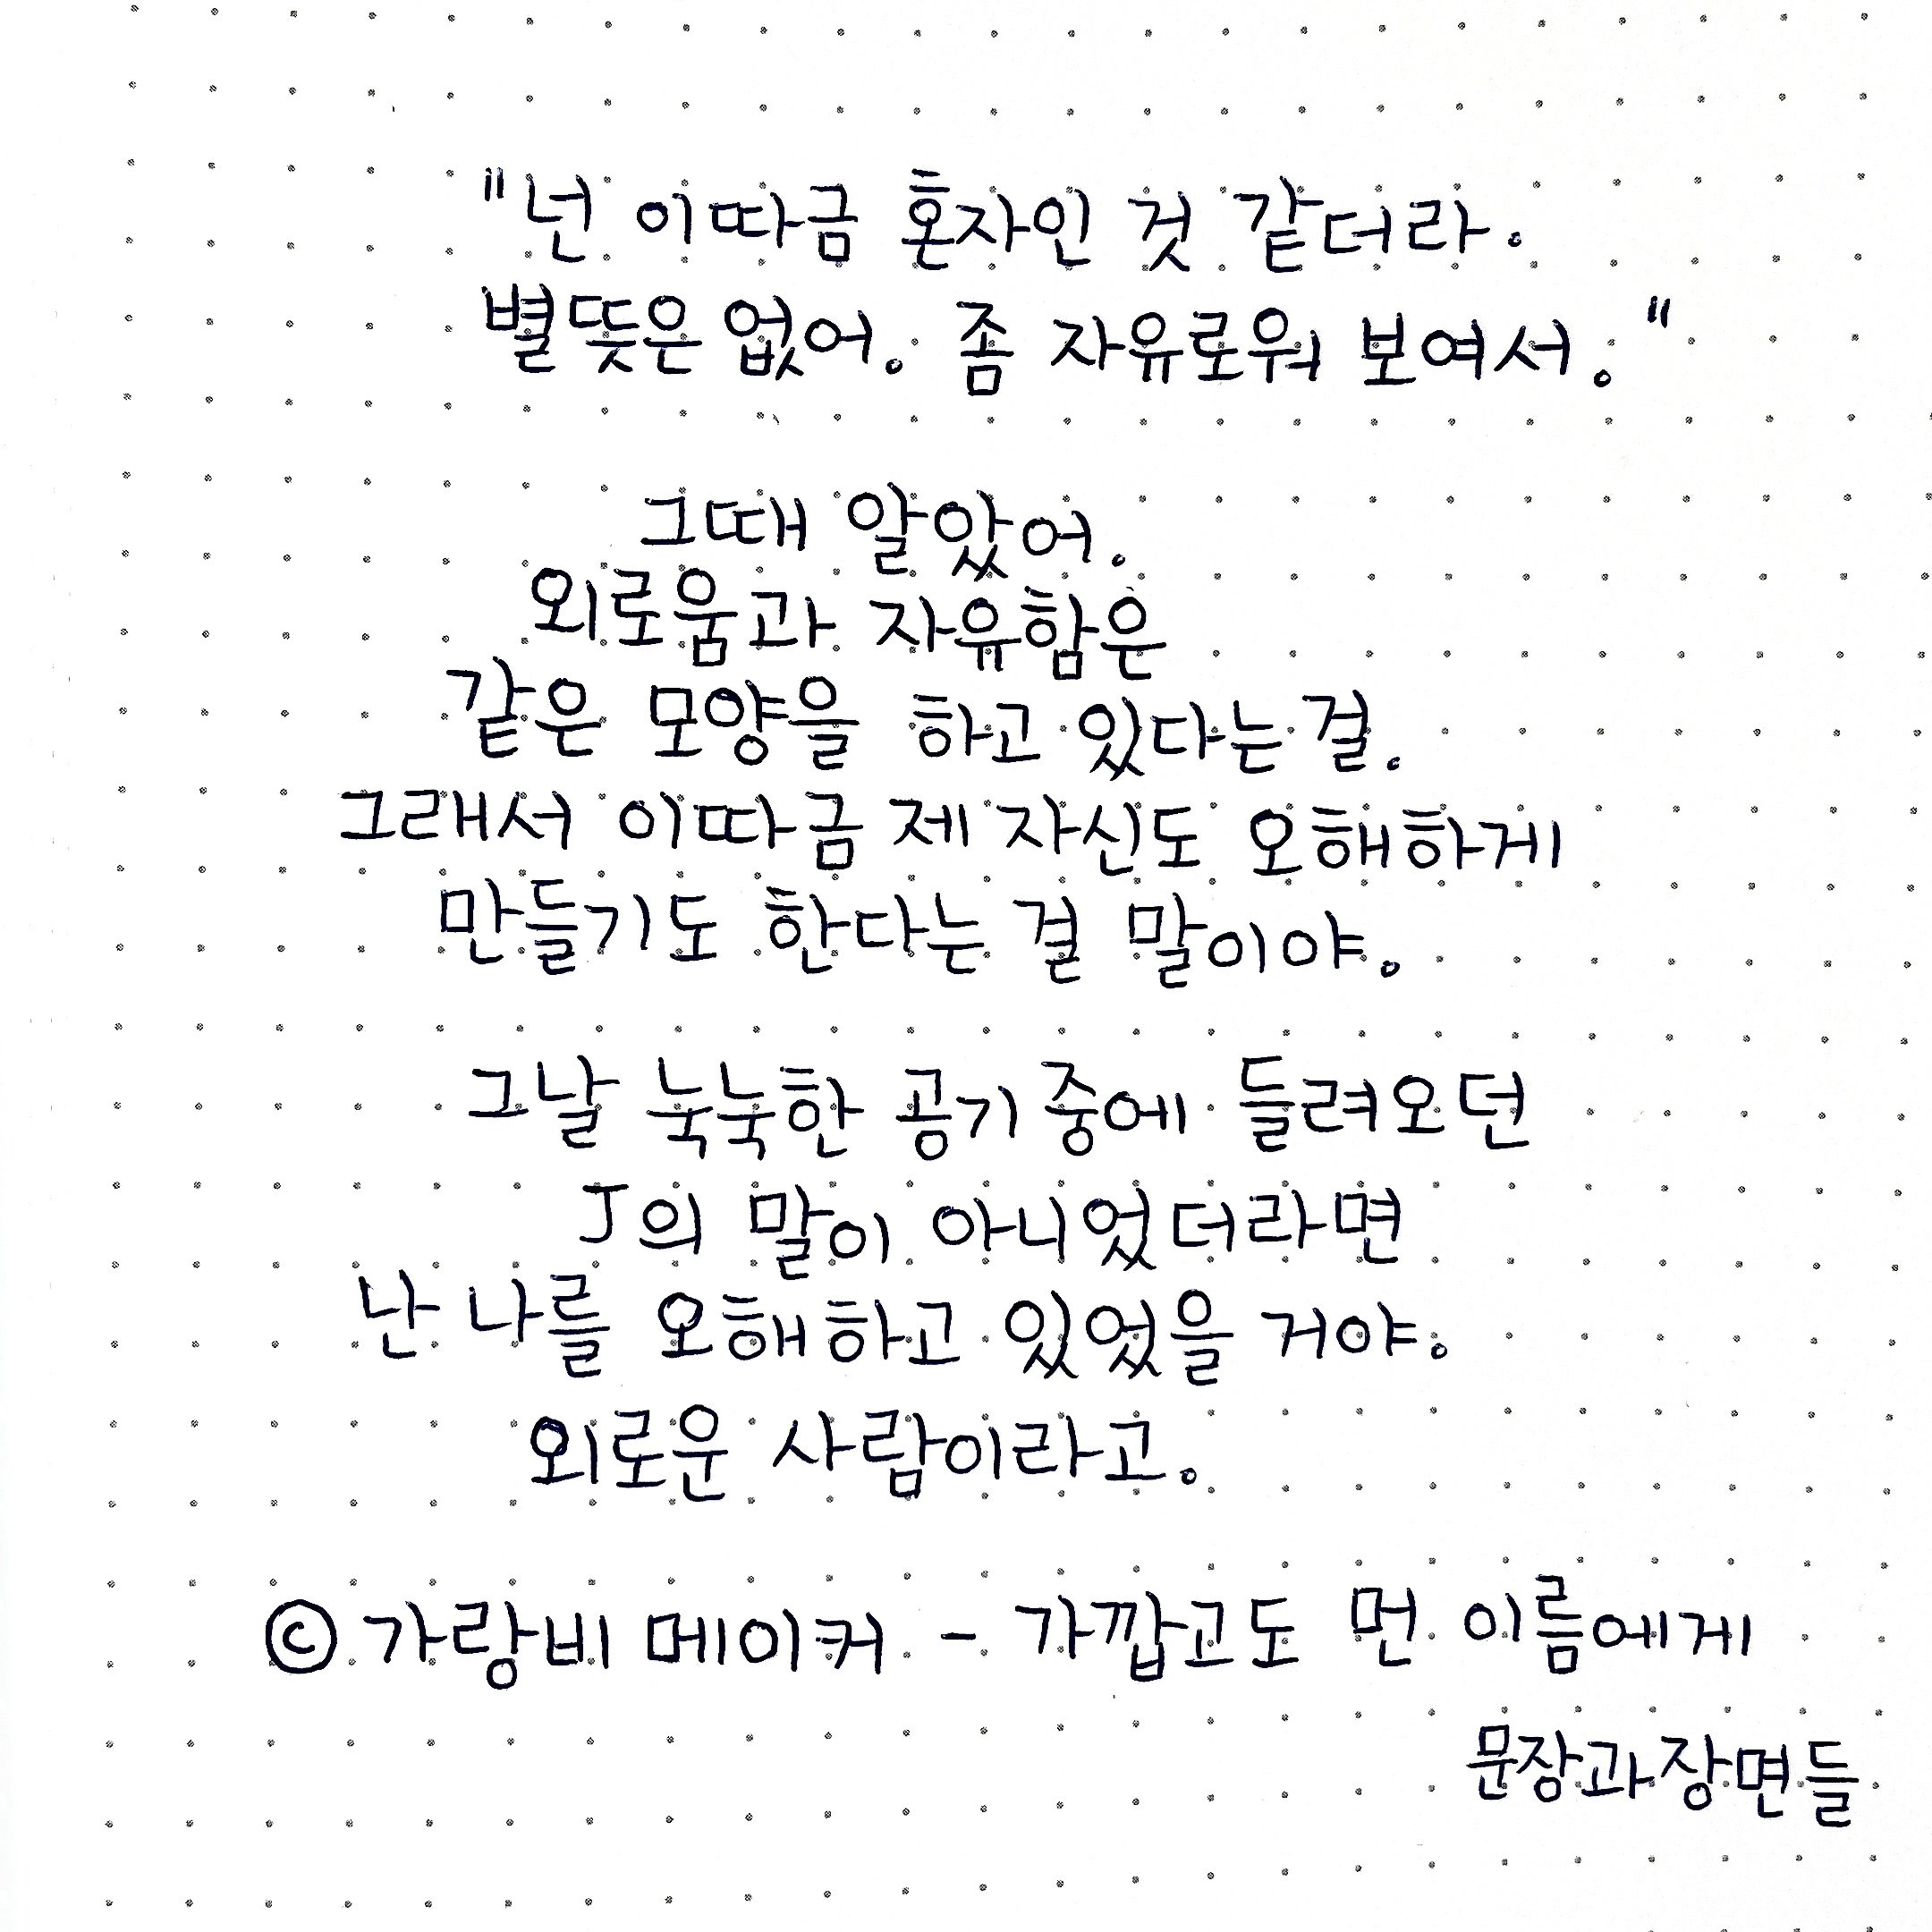 "넌 이따금 혼자인 것 같더라.
별뜻은 없어. 좀 자유로워 보여서."
그때 알았어.
외로움과 자유함은
같은 모양을 하고 있다는 걸.
그래서 이따금 제 자신도 오해하게
만들기도 한다는 걸 말이야.
그날 눅눅한 공기 중에 들려오던
J의 말이 아니었더라면
난 나를 오해하고 있었을 거야.
외로운 사람이라고.
© 가랑비메이커 - 가깝고도 먼 이름에게
문장과장면들